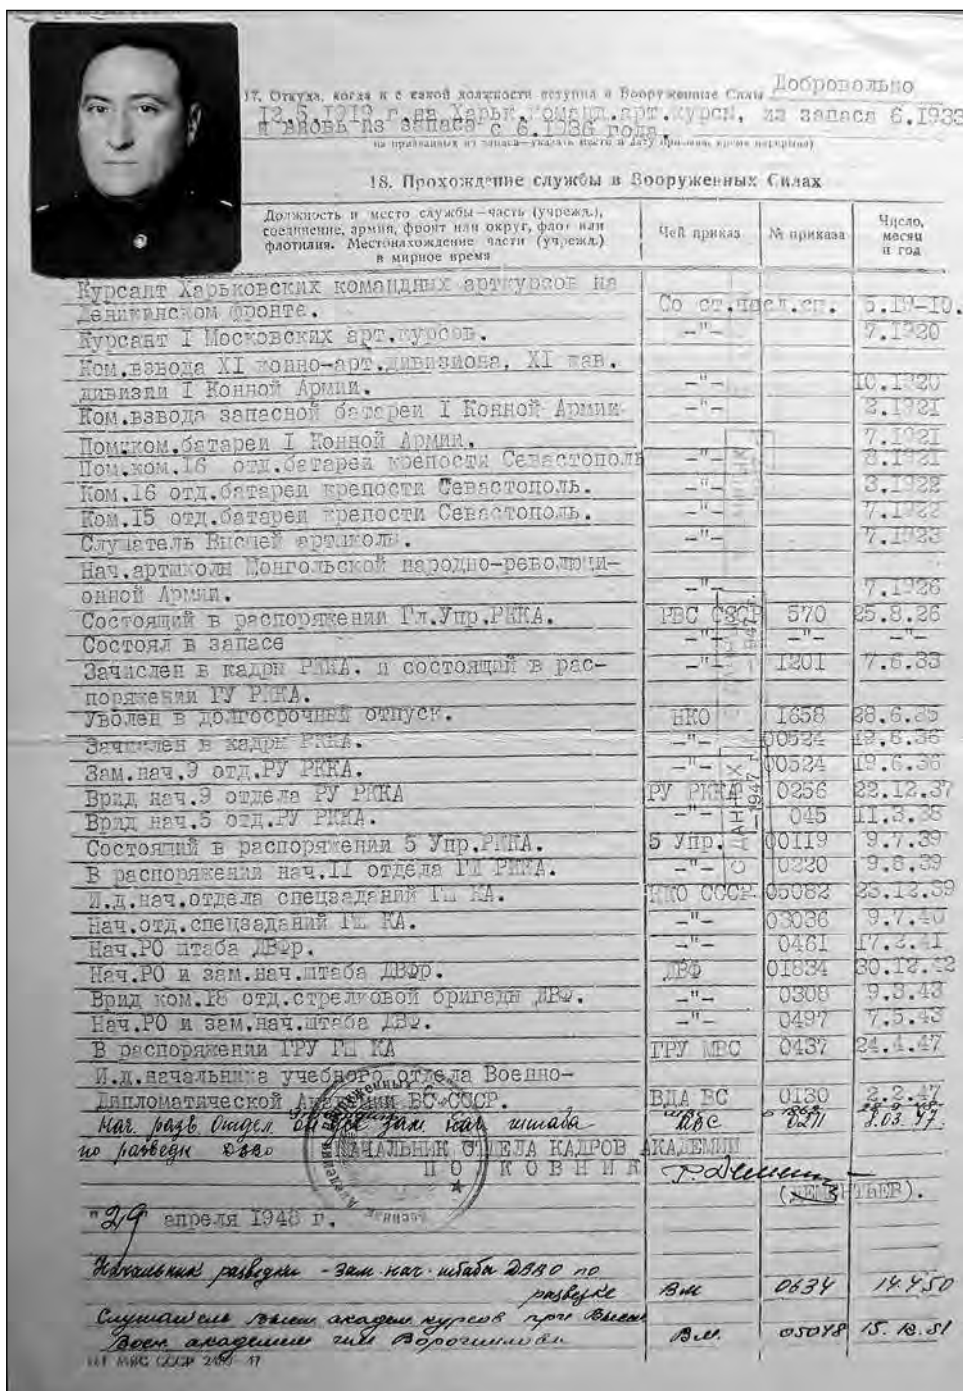 17. Откуда, когда и с какой должности вступил в Вооруженные Силы Добровольно
12.5.1919 г. на Харьк. команд.арт.курсы, из запаса 6.1933
и вновь из запаса с 6.1936 года.
18. Прохождение службы в Вооруженных Силах
Должность и место службы—часть (учрежд.), соединение, армия, фронт или округ, флот или флотилия. Местонахождение части (учрежд.) в мирное время | Чей приказ | № приказа | Число, месяц и год
Курсант Харьковских командных арткурсов на
Деникинском фронте. Со сл. 5.19-10.
Курсант I Московских арт.курсов. -"- 7.1920
Ком.взвода XI конно-арт.дивизиона, XI кав.
дивизии I Конной Армии. -"- 10.1920
Ком.взвода запасной батареи I Конной Армии -"- 2.1921
Пом.ком.батареи I Конной Армии. 7.1921
Пом.ком.16 отд.батареи крепости Севастополь -"- 8.1921
Ком.16 отд.батареи крепости Севастополь. -"- 3.1922
Ком.15 отд.батареи крепости Севастополь. -"- 7.1922
Слушатель Высшей артшколы. -"- 7.1923
Нач.артшколы Монгольской народно-революци-
онной Армии. -"- 7.1926
Состоящий в распоряжении Гл.Упр.РККА. РВС СССР 570 25.8.26
Состоял в запасе -"- -"- -"-
Зачислен в кадры РККА. и состоящий в рас- -"- 1201 7.6.33
поряжении РУ РККА.
Уволен в долгосрочный отпуск. НКО 1658 28.6.35
Зачислен в кадры РККА. -"- 00524 19.6.36
Зам.нач.9 отд.РУ РККА. -"- 00524 19.6.36
Врид нач.9 отдела РУ РККА РУ РККА 0256 22.12.37
Врид нач.5 отд.РУ РККА. -"- 045 11.3.38
Состоящий в распоряжении 5 Упр.РККА. 5 Упр. 00119 9.7.39
В распоряжении нач.II отдела ГШ РККА. -"- 0220 9.8.39
И.д.нач.отдела спецзаданий ГШ КА. НКО СССР 05082 23.12.39
Нач.отд.спецзаданий ГШ КА. -"- 03036 9.7.40
Нач.РО штаба ДВФр. -"- 0461 17.2.41
Нач.РО и зам.нач.штаба ДВФр. ДВФ 01834 30.12.42
Врид ком.18 отд.стрелковой бригады ДВФ. -"- 0308 9.3.43
Нач.РО и зам.нач.штаба ДВФ. -"- 0497 7.5.43
В распоряжении ГРУ ГШ КА ГРУ МВС 0437 24.4.47
И.д.начальника учебного отдела Военно-
Дипломатической Академии ВС СССР. ВДА ВС 0130 2.2.47
Нач. разв. отдел зам. нач. штаба МВС 0211
по разведк НАЧАЛЬНИК ОТДЕЛА КАДРОВ АКАДЕМИИ
ПОЛКОВНИК
(ДЕМЕНТЬЕВ).
"29" апреля 1948 г.
Начальник разведки - зам. нач. штаба ДВВО по
разведке ВМ 0634 14.4.50
Слушатель высш. академ. курсов при Высш.
Воен. академии им Ворошилова В.М. 05048 15.12.51